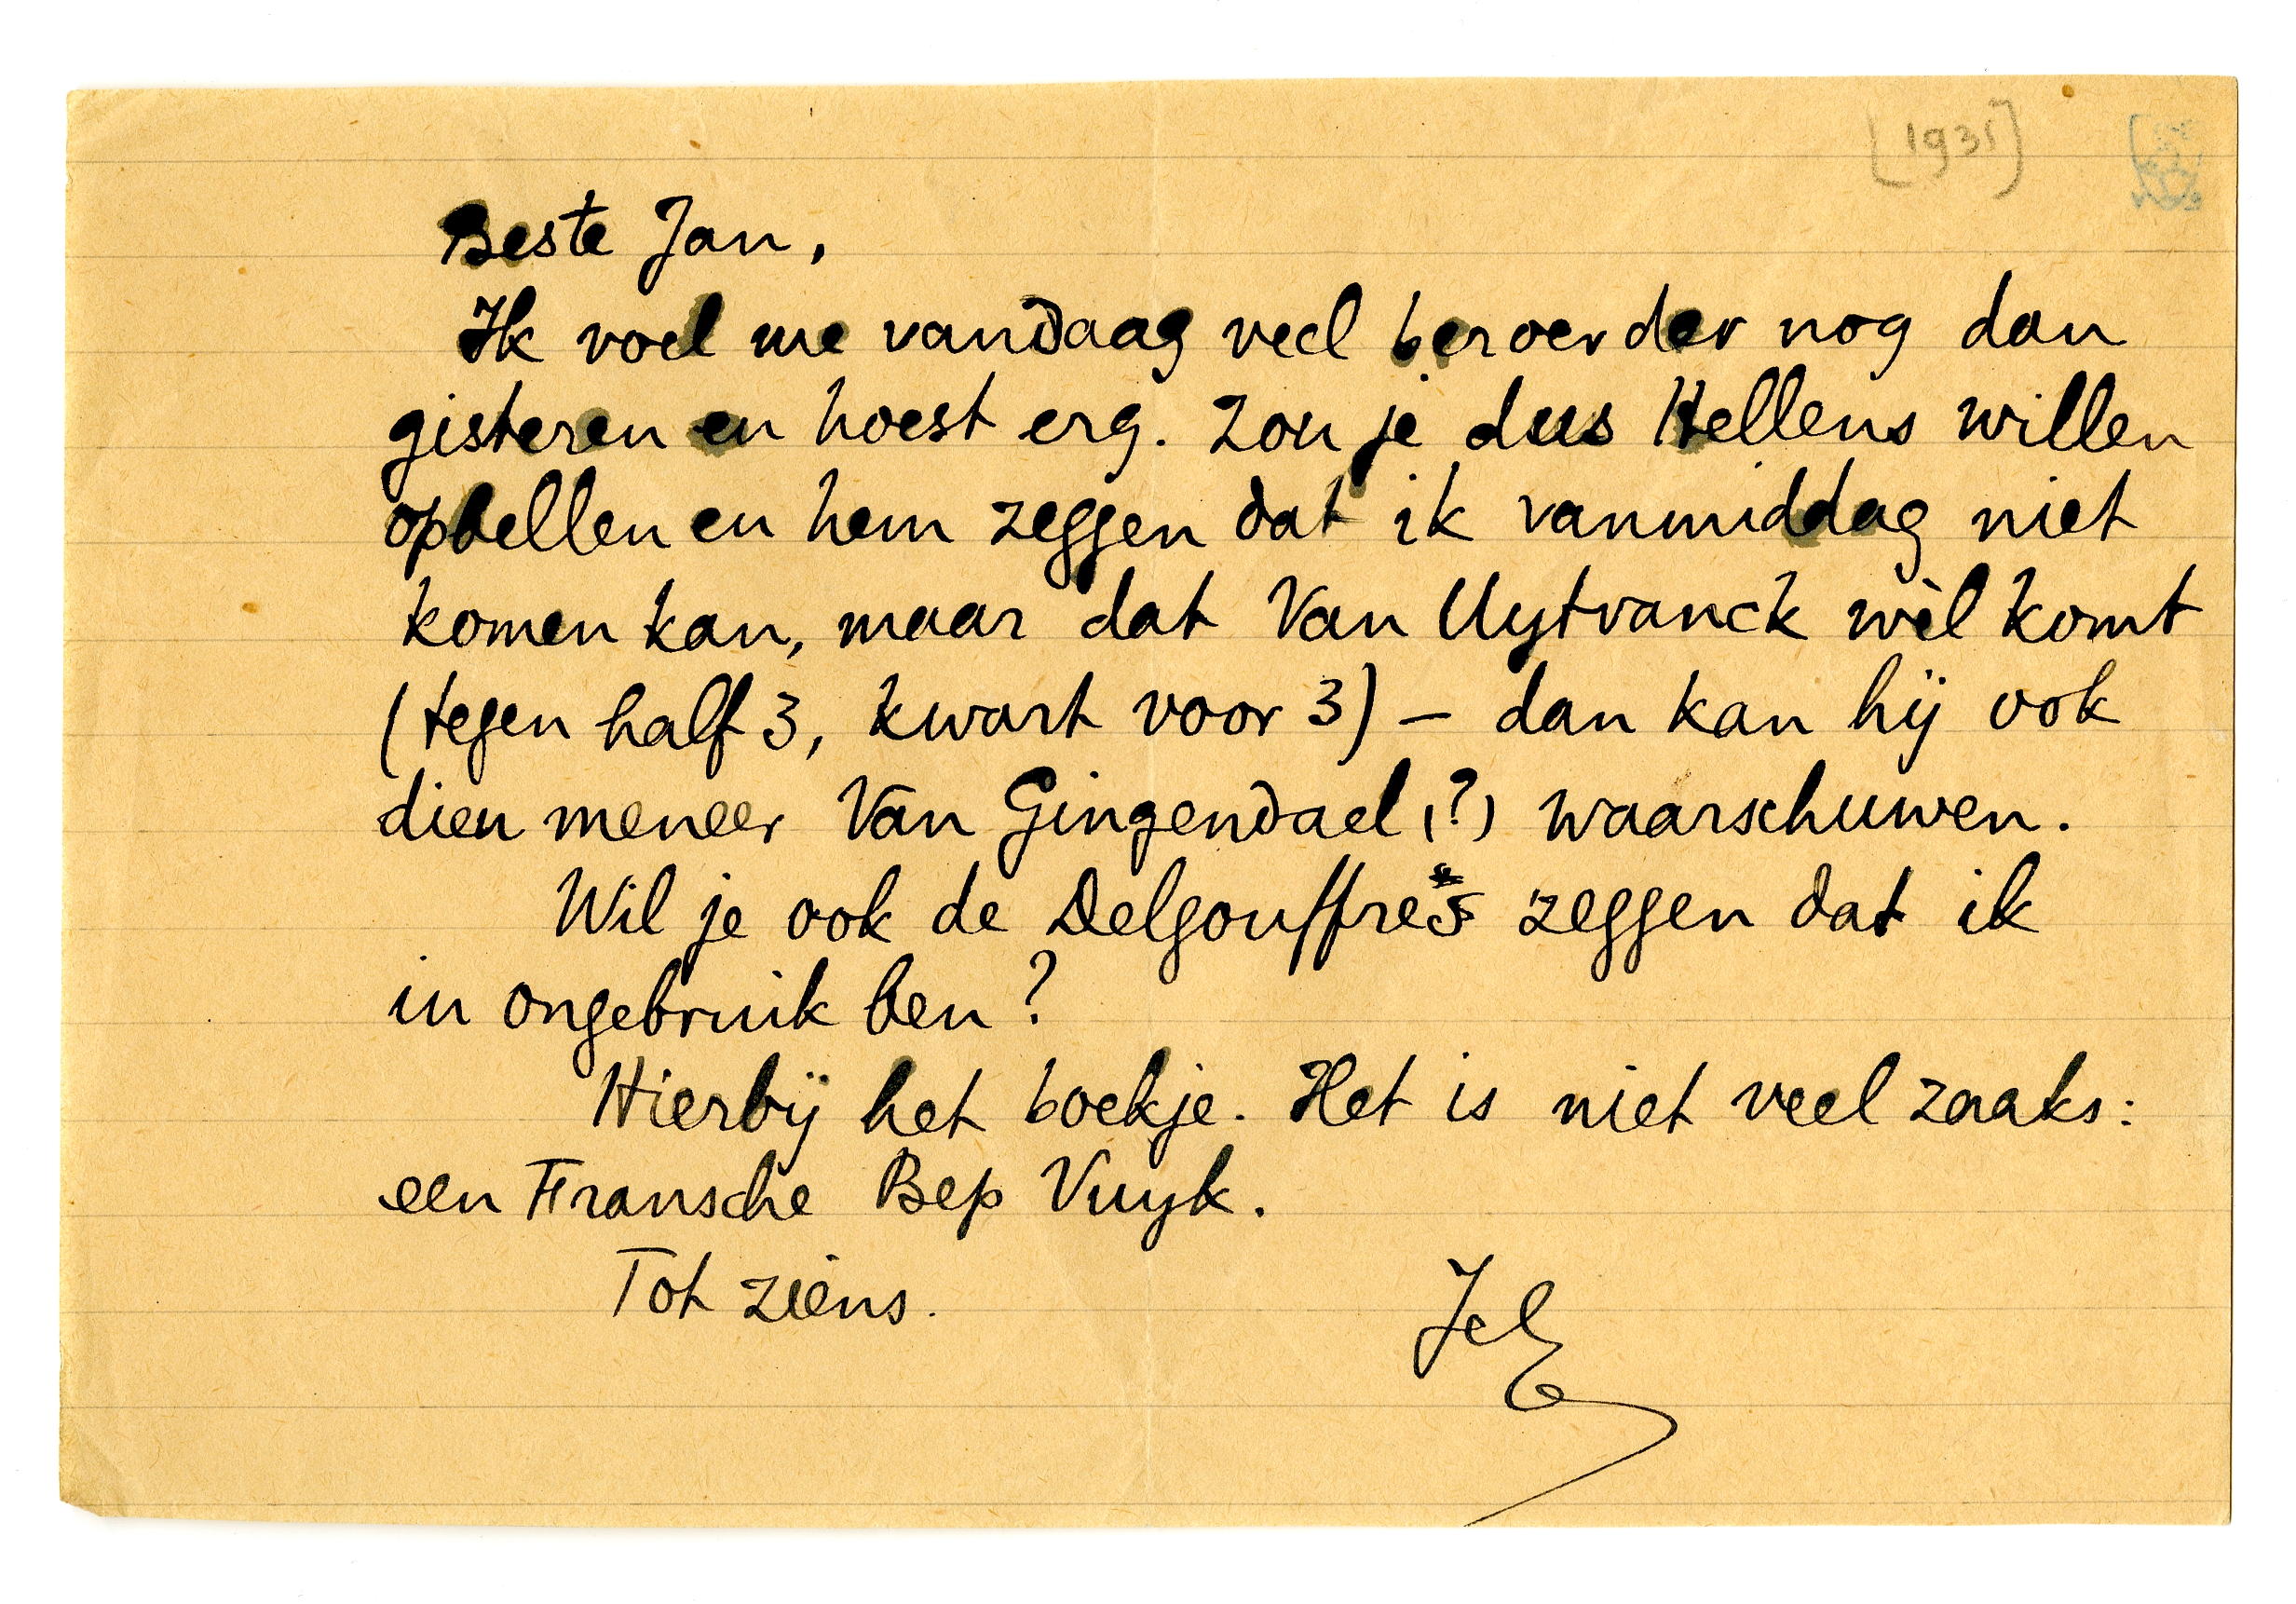 [1931]
Beste Jan,
Ik voel me vandaag veel beroerder nog dan
gisteren en hoest erg. Zou je dus Hellens willen
opbellen en hem zeggen dat ik vanmiddag niet
komen kan, maar dat Van Uytvanck wèl komt
(tegen half 3, kwart voor 3) – dan kan hij ook
dien meneer Van Gingendael (?) waarschuwen.
Wil je ook de Delgouffre's zeggen dat ik
in ongebruik ben?
Hierbij het boekje. Het is niet veel zaaks:
een Fransche Bep Vuyk.
Tot ziens.